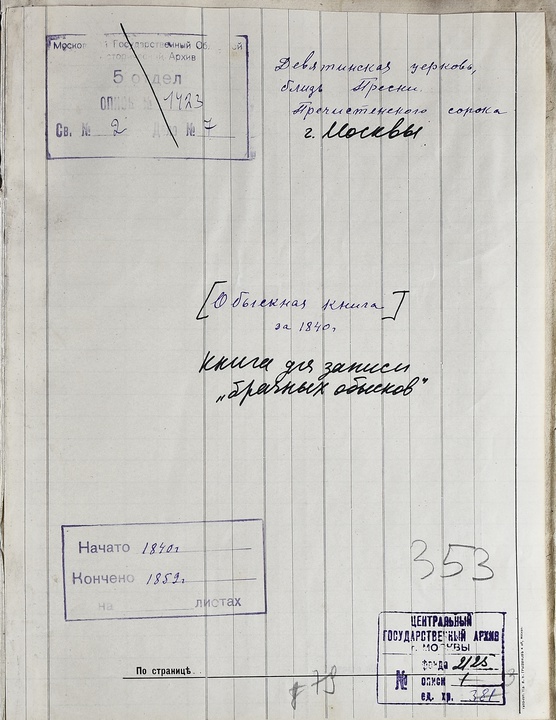 Московский Государственный Областной
Исторический Архив
5 отдел
опись № 1423
Св. № 2 Дело № 7
Девятинская церковь,
близь Пресни.
Пречистенского сорока
г. Москвы
[Обыскная книга]
за 1840г.
книга для записи
„брачных обысков"
Начато 1840г.
Кончено 1859г.
на листах
353
ЦЕНТРАЛЬНЫЙ
ГОСУДАРСТВЕННЫЙ АРХИВ
г. МОСКВЫ
фонда 2125
№ описи 1
ед. хр. 381
По странице